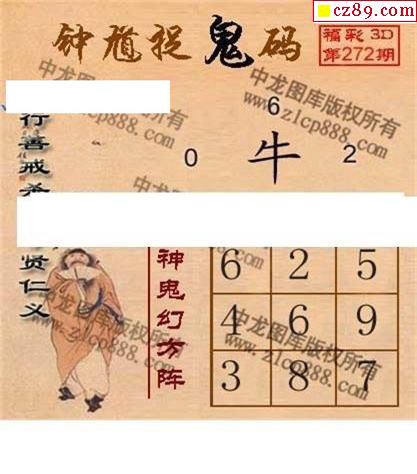 cz89.com
钟馗捉鬼码
福彩3D
第272期
中龙图库版权所有
www.zlcp888.com
中龙图库版权所有
www.zlcp888.com
6
0 牛 2
行善戒
贤仁义
神鬼幻方阵
6 2 5
4 6 9
3 8 7
中龙图库版权所有
www.zlcp888.com
中龙图库版权所有
www.zlcp888.com